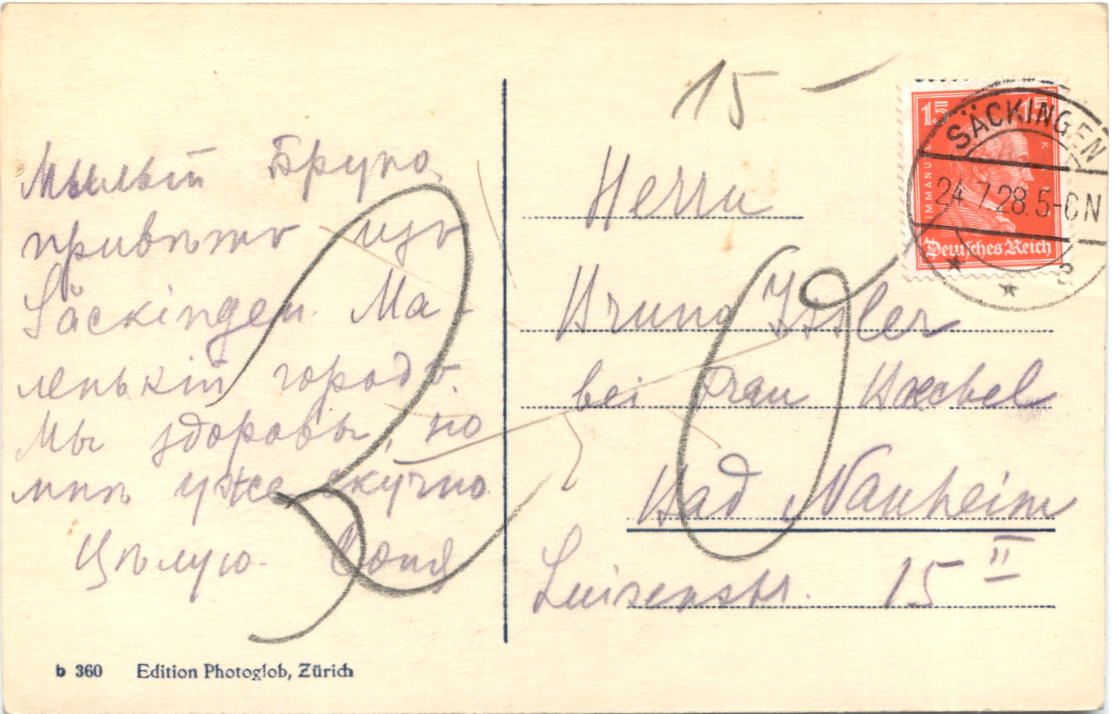 15 —
Мылый Бруно,
привѣтъ изъ
Säckingen. Ма-
ленькій городъ.
Мы здоровы, но
мнѣ уже скучно
Цѣлую. Соня
Herrn
Bruno
bei Frau
Bad Nauheim
Luisenstr. 15 II
15 15
IMMANUEL
Deutsches Reich
SÄCKINGEN
24.7.28.5-6N
30
b 360 Edition Photoglob, Zürich